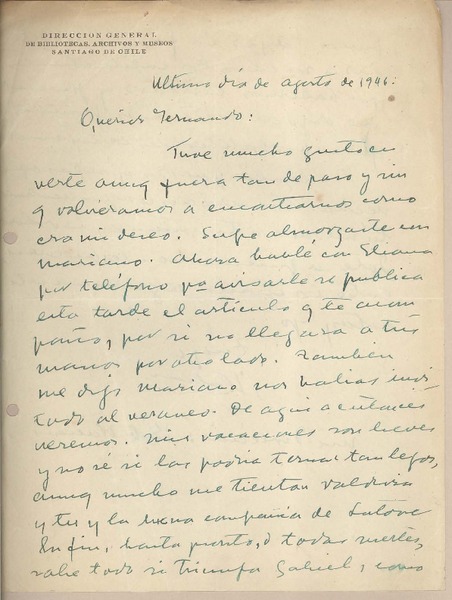 DIRECCION GENERAL
DE BIBLIOTECAS, ARCHIVOS Y MUSEOS
SANTIAGO DE CHILE
Ultimo día de agosto de 1946.
Querido Fernando:
Tuve mucho gusto en
verte aunq fuera tan de paso y sin
q volviéramos a encontrarnos como
era mi deseo. Supe almorzaste con
Mariano. Ahora hablé con Eliana
por teléfono pa avisarle se publica
esta tarde el artículo q te acom
paño, por si no llegara a tus
manos por otro lado. También
me dijo Mariano nos habías invi
tado al veraneo. De aquí a entonces
veremos. Mis vacaciones son breves
y no sé si las podría tomar tan lejos,
aunq mucho me tientan Valdivia
y tu y la buena compañía de
En fin, hasta pronto, de todas suertes,
sobre todo si triunfa Gabriel, como